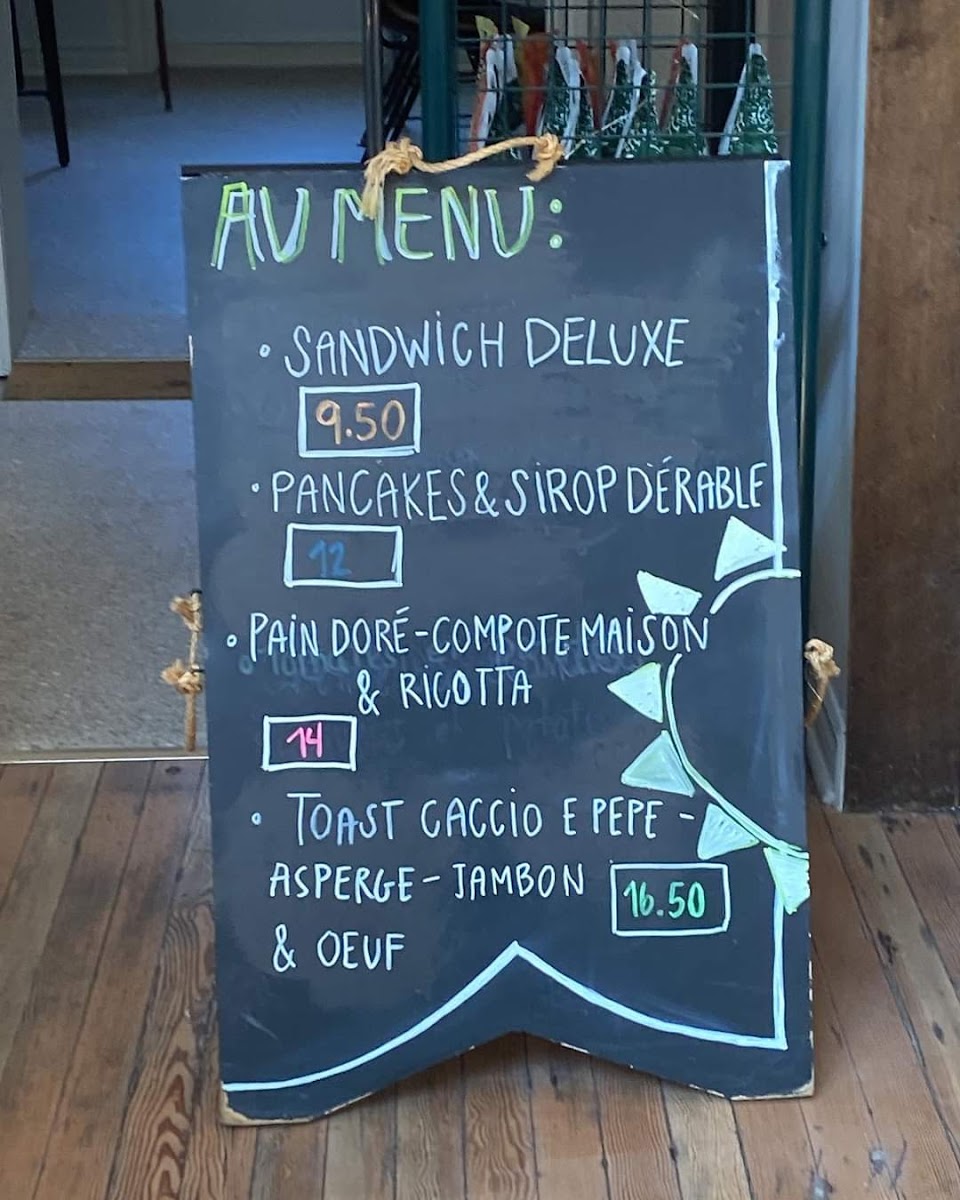 AU MENU:
• SANDWICH DELUXE
9.50
• PANCAKES & SIROP D'ÉRABLE
12
• PAIN DORÉ - COMPOTE MAISON
& RICOTTA
14
• TOAST CACCIO E PEPE -
ASPERGE - JAMBON 16.50
& OEUF